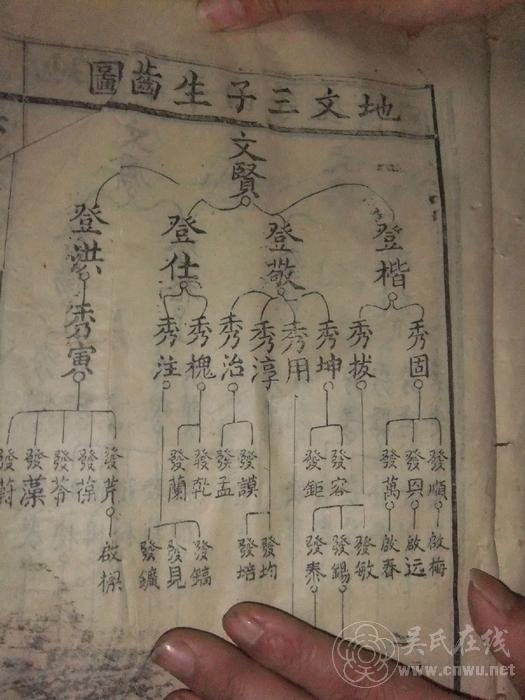 地文三子生齒圖
文賢
登楷 登敬 登仕 登洪
秀固 秀拔 秀坤 秀用 秀淳 秀治 秀槐 秀注 秀寅
發順 發貝 發萬 發容 發鉅 發謨 發孟 發乾 發蘭 發芹 發葆 發芬 發藻 發蔚
啟梅 啟远 啟春 發敏 發錫 發泰 發均 發培 發鎬 發見 發鑛 啟
吴氏在线
www.cnwu.net